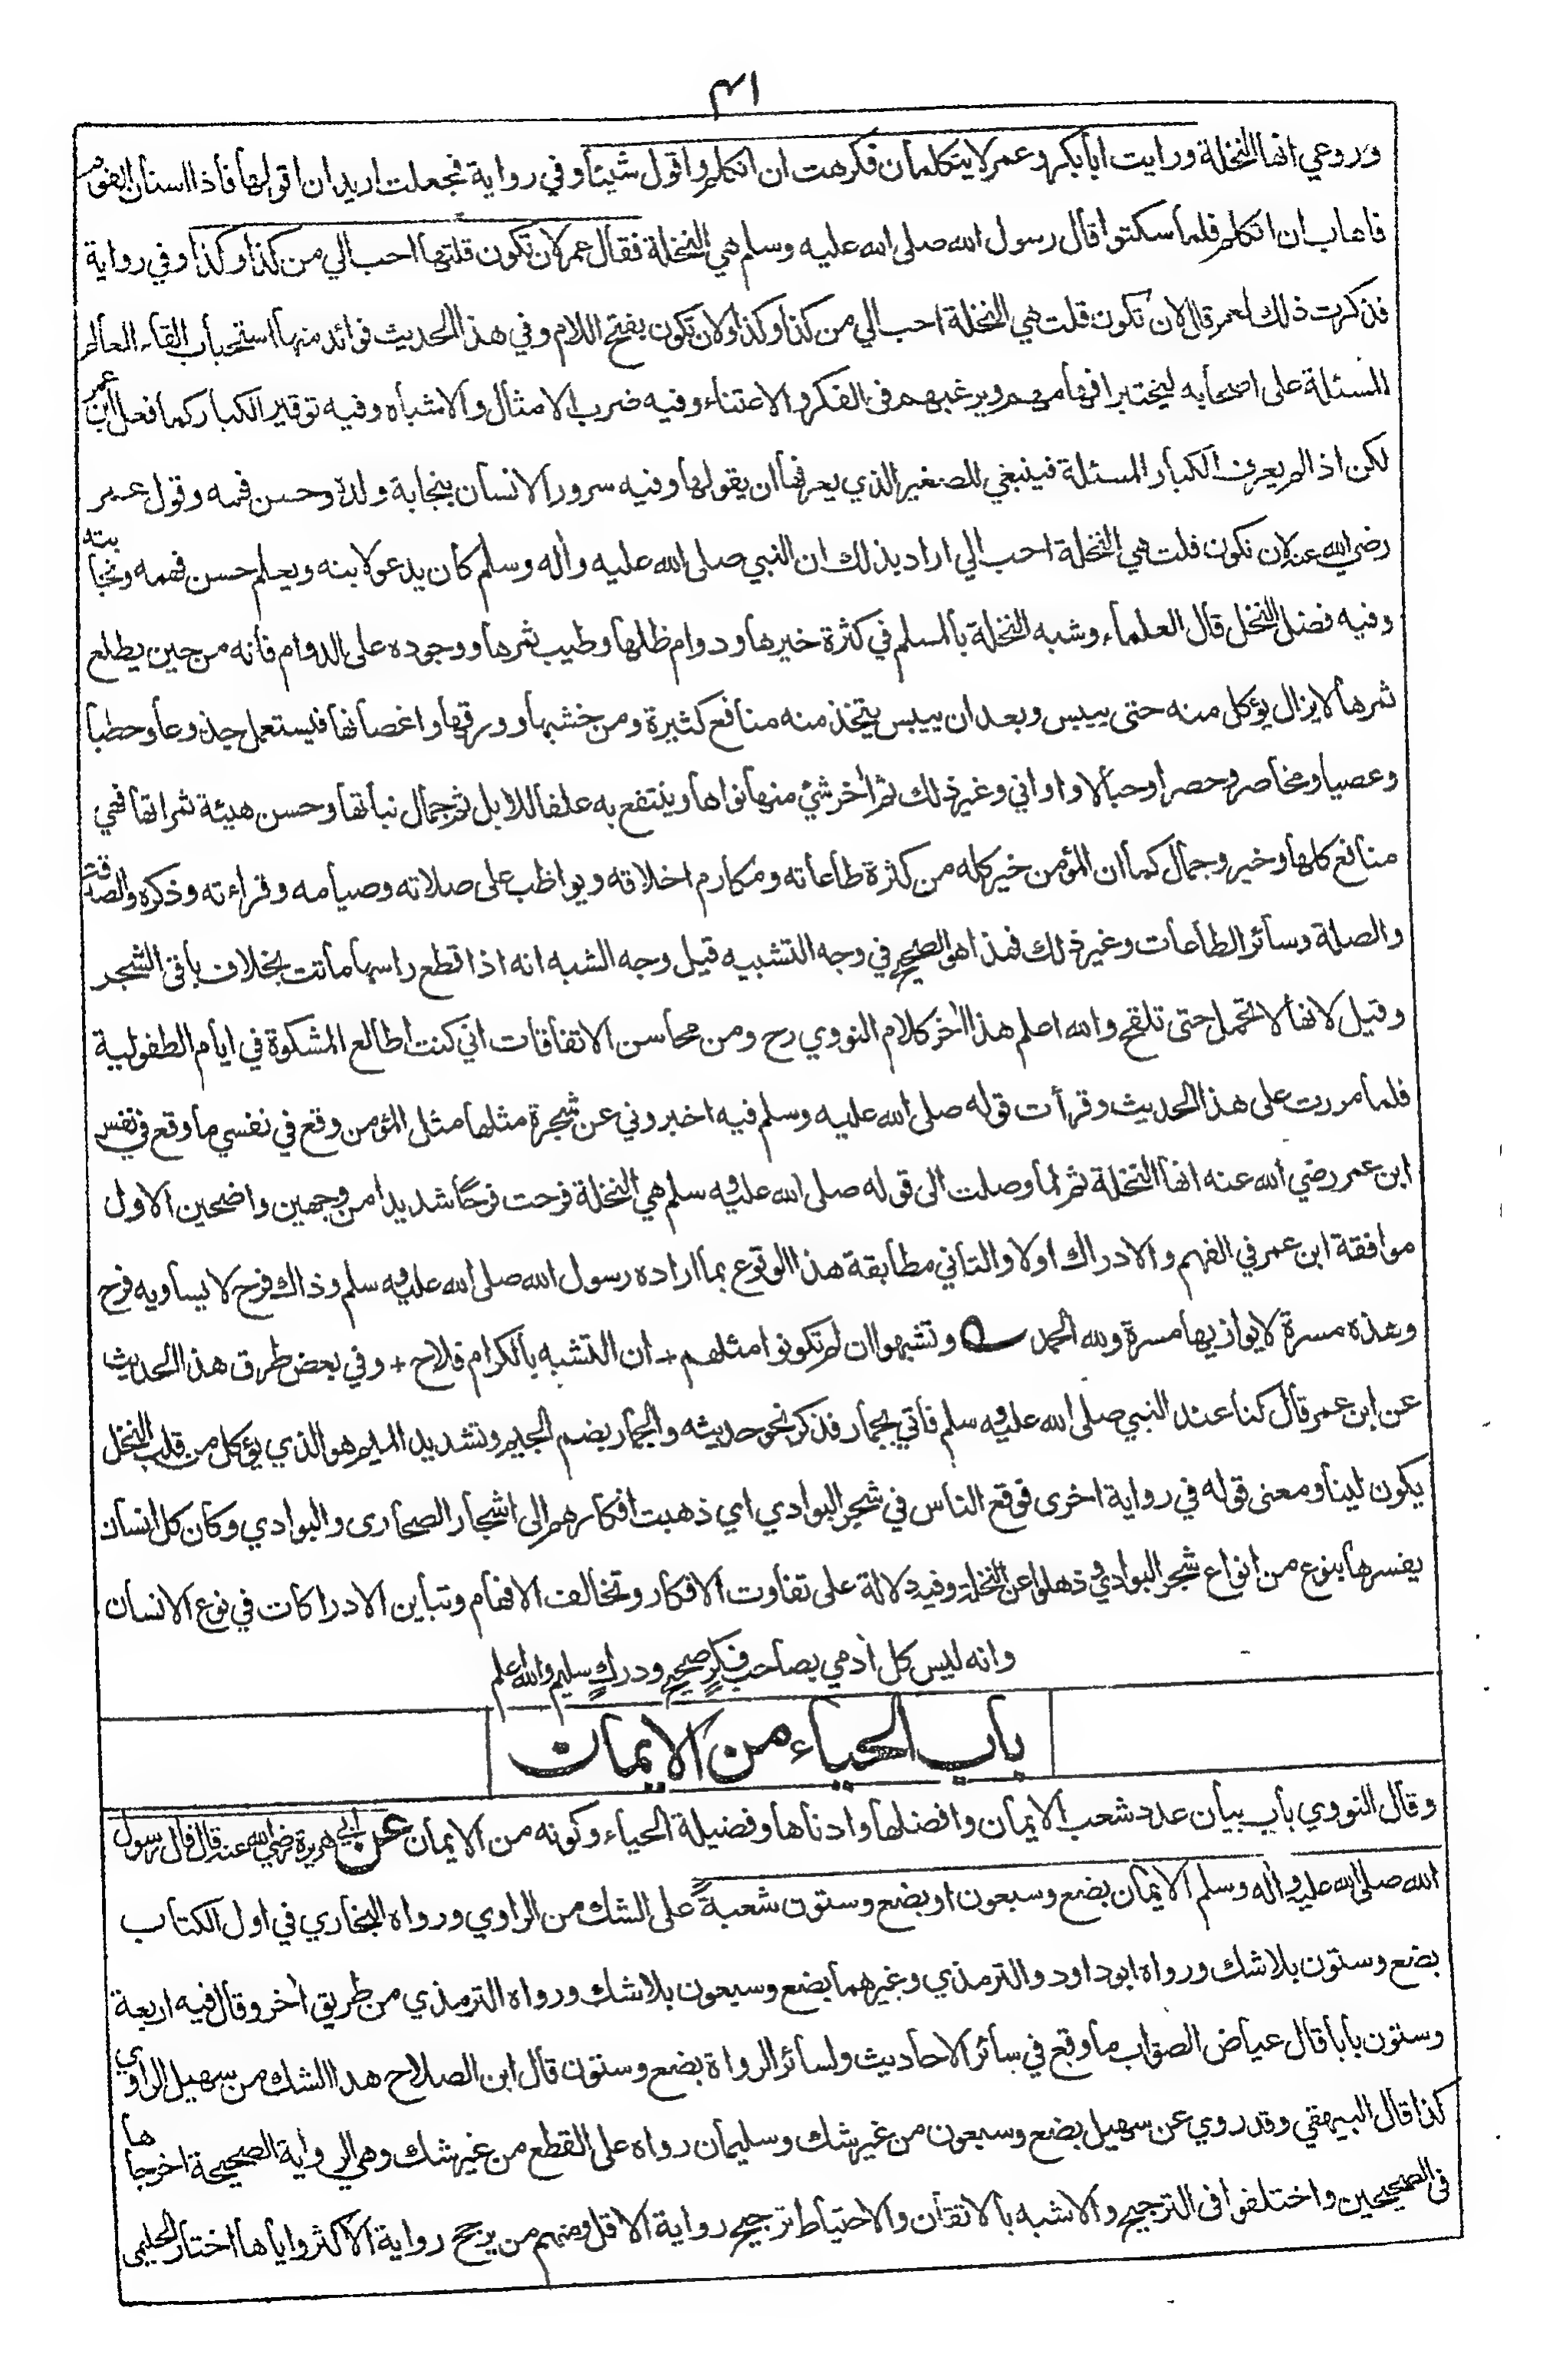 ٤١
وروعي انها النخلة ورايت ابا بكر وعمر لا يتكلمان فكرهت ان اتكلم او اقول شيئا وفي رواية فجعلت اريد ان اقولها فاذا اسنان القوم
فاهاب ان اتكلم فلما سكتوا قال رسول الله صلى الله عليه وسلم هي النخلة فقال عمر لان تكون قلتها احب الي من كذا وكذا وفي رواية
فذكرت ذلك لعمر قال لان تكون قلت هي النخلة احب الي من كذا وكذا ولان تكون بفتح اللام وفي هذا الحديث فوائد منها استحباب القاء العالم
المسئلة على اصحابه ليختبر افهامهم ويرغبهم في الفكر والاعتناء وفيه ضرب الامثال والاشباه وفيه توقير الكبار كما فعل ابن عمر
لكن اذا لم يعرف الكبار المسئلة فينبغي للصغير الذي يعرفها ان يقولها وفيه سرور الانسان بنجابة ولده وحسن فهمه وقول عمر
رضي الله عنه لان تكون قلت هي النخلة احب الي اراد بذلك ان النبي صلى الله عليه واله وسلم كان يدعو لابنه ويعلم حسن فهمه ونجابته
وفيه فضل النخل قال العلماء وشبه النخلة بالمسلم في كثرة خيرها ودوام ظلها وطيب ثمرها ووجوده على الدوام فانه من حين يطلع
ثمرها لا يزال يؤكل منه حتى ييبس وبعد ان ييبس يتخذ منه منافع كثيرة ومن خشبها وورقها واغصانها فيستعمل جذوعا وحطبا
وعصيا ومخاصر وحصرا وحبالا واواني وغير ذلك ثم اخر شئ منها نواها وينتفع به علفا للابل ثم جمال نباتها وحسن هيئة ثمراتها فهي
منافع كلها وخير وجمال كما ان المؤمن خير كله من كثرة طاعاته ومكارم اخلاقه ويواظب على صلاته وصيامه وقراءته وذكره والصدقة
والصلة وسائر الطاعات وغير ذلك فهذا هو الصحيح في وجه التشبيه قيل وجه الشبه انه اذا قطع راسها ماتت بخلاف باقي الشجر
وقيل لانها لا تحمل حتى تلقح والله اعلم هذا اخر كلام النووي رح ومن محاسن الاتفاقات اني كنت اطالع المشكوة في ايام الطفولية
فلما مررت على هذا الحديث وقرأت قوله صلى الله عليه وسلم فيه اخبروني عن شجرة مثلها مثل المؤمن وقع في نفسي ما وقع في نفس
ابن عمر رضي الله عنه انها النخلة ثم لما وصلت الى قوله صلى الله عليه وسلم هي النخلة فرحت فرحا شديدا من وجهين واضحين الاول
موافقة ابن عمر في الفهم والادراك اولا والثاني مطابقة هذا الوقوع بما اراده رسول الله صلى الله عليه وسلم وذاك فرح لا يساويه فرح
وهذه مسرة لا يوازيها مسرة ولله الحمد وتشبهوا ان لم تكونوا مثلهم + ان التشبه بالكرام فلاح + وفي بعض طرق هذا الحديث
عن ابن عمر قال كنا عند النبي صلى الله عليه وسلم فاتي بجمار فذكر نحو حديثه والجمار بضم الجيم وتشديد الميم هو الذي يؤكل من قلب النخل
يكون لينا ومعنى قوله في رواية اخرى فوقع الناس في شجر البوادي اي ذهبت افكارهم الى اشجار الصحارى والبوادي وكان كل انسان
يفسرها بنوع من انواع شجر البوادي وذهلوا عن النخلة وفيه دلالة على تفاوت الافكار وتخالف الافهام وتباين الادراكات في نوع الانسان
وانه ليس كل ادمي بصاحب فكر صحيح ودرك سليم والله اعلم
باب الحياء من الايمان
وقال النووي باب بيان عدد شعب الايمان وافضلها وادناها وفضيلة الحياء وكونه من الايمان عن ابي هريرة رضي الله عنه قال قال رسول
الله صلى الله عليه واله وسلم الايمان بضع وسبعون او بضع وستون شعبة على الشك من الراوي ورواه البخاري في اول الكتاب
بضع وستون بلا شك ورواه ابو داود والترمذي وغيرهما بضع وسبعون بلا شك ورواه الترمذي من طريق اخر وقال فيه اربعة
وستون بابا قال عياض الصواب ما وقع في سائر الاحاديث ولسائر الرواة بضع وستون قال ابن الصلاح هذا الشك من سهيل الراوي
كذا قال البيهقي وقد روي عن سهيل بضع وسبعون من غير شك وسليمان رواه على القطع من غير شك وهي الرواية الصحيحة اخرجاها
في الصحيحين واختلفوا في الترجيح والاشبه بالاتقان والاحتياط ترجيح رواية الاقل ومنهم من يرجح رواية الاكثر واياها اختار الحليمي